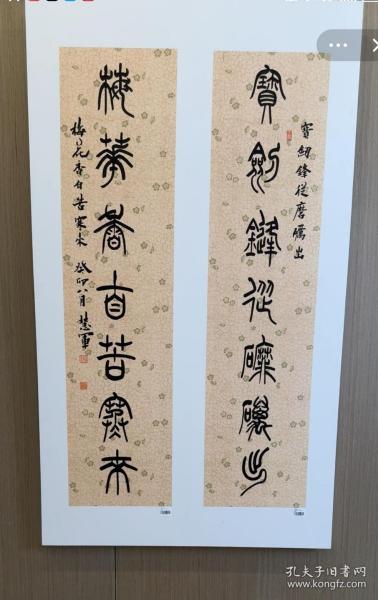 寶劍鋒從磨礪出
寶劍鋒從磨礪出
梅華香自苦寒來
梅花香自苦寒来 癸卯八月 慧軍
孔夫子旧书网
www.kongfz.com